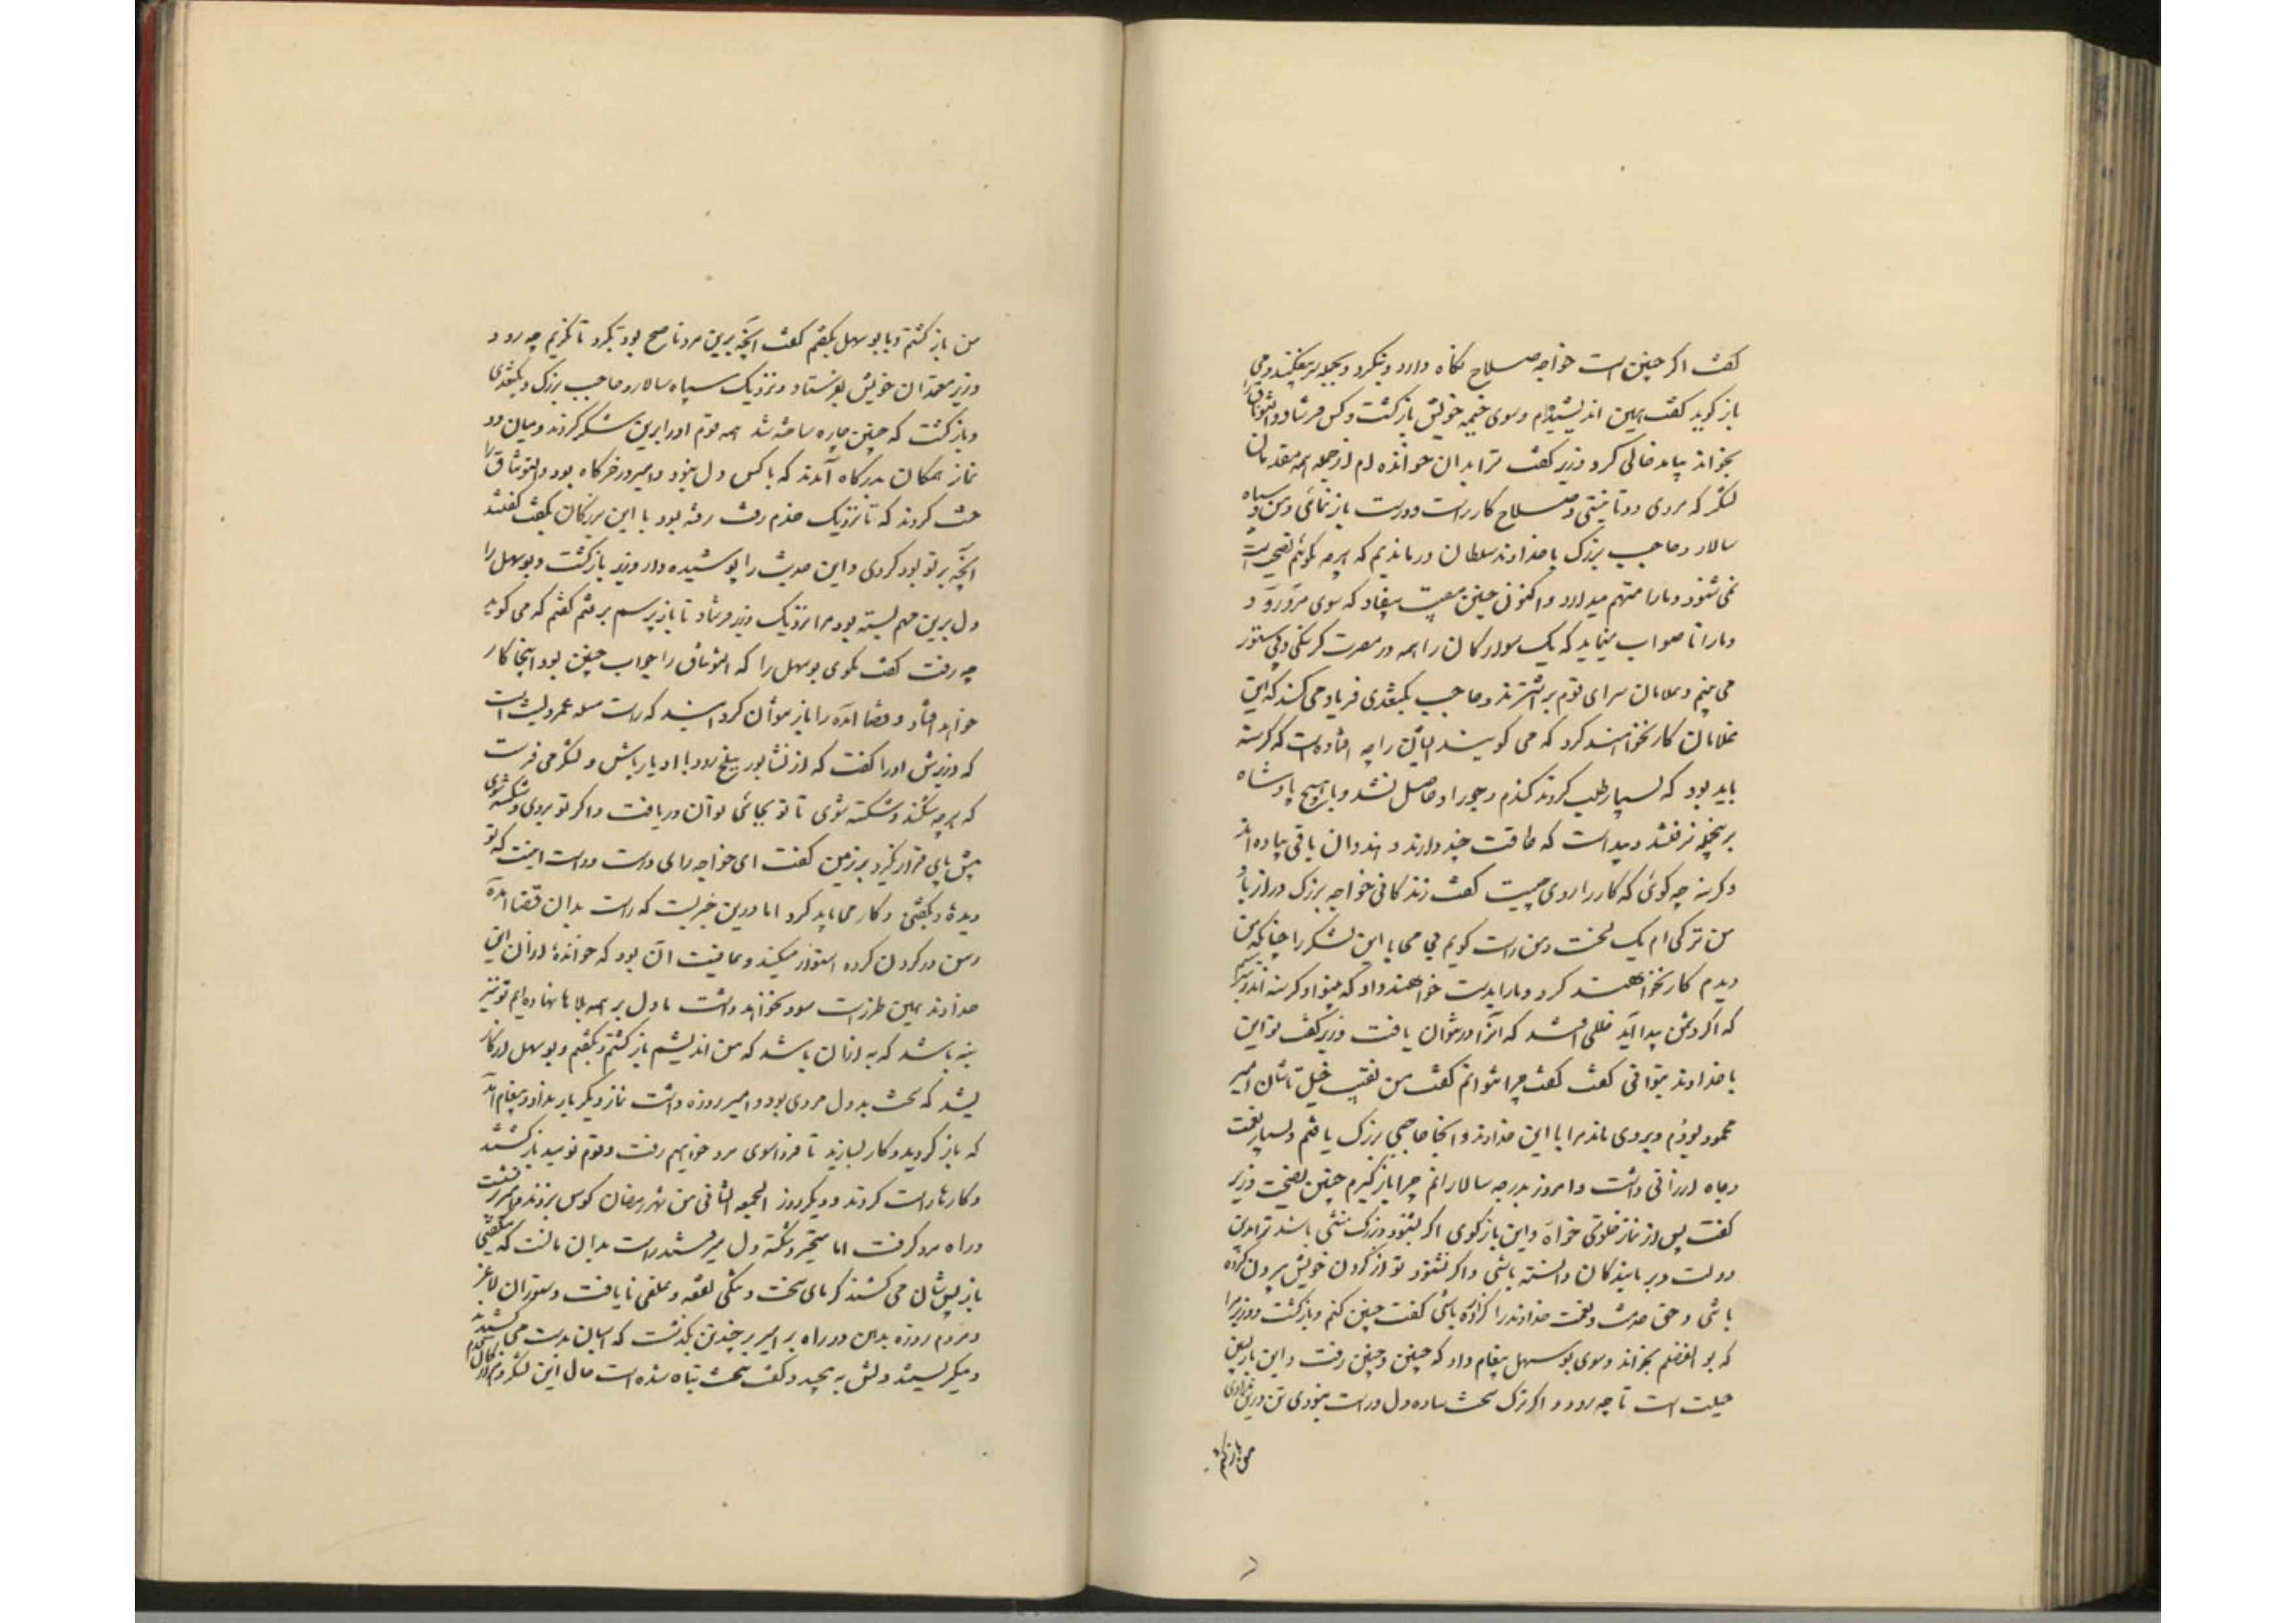 گفت اگر چنین است خواجه صلاح نگاه دارد و بنگرد و بجمله سر بیفکند و می
باز گوید گفت همین اندیشیده‌ام و سوی خیمه خویش بازگشت و کس فرستاد و التونتاق را
بخواند بیامد خالی کرد وزیر گفت ترا بدان خوانده‌ام از جمله همه مقدمان
لشکر که مردی دوتا نیستی و صلاح کار راست و درست باز نمائی و من و سپاه
سالار و حاجب بزرگ با خداوند سلطان درماندیم که هرچه گوئیم نصیحت
نمی‌شنود و ما را متهم میدارد و اکنون چنین مصیبت بیفتاد که سوی مرو رود
و ما را ناصواب مینماید که یک سوارگان را همه در مضرت گرسنگی و بی‌ستور
می‌بینم و غلامان سرای قوم بر اشترند و حاجب بکتغدی فریاد می‌کند که این
غلامان کار نخواهند کرد که می‌گویند ایشان را چه افتاده است که گرسنه
باید بود که بسیار طلب کردند گندم و جو را و حاصل نشد و با هیچ پادشاه
برینجمله نرفتند و پیداست که طاقت چند دارند و هندوان باقی پیاده‌اند
و گرسنه چه گوئی که کار را روی چیست گفت زندگانی خواجه بزرگ دراز باد
من ترکی‌ام یک لخت و من راست گویم بی محابا این لشکر را چنانکه من
دیدم کار نخواهند کرد و ما را بدست خواهند داد که بینوا و گرسنه‌اند و بترسم
که اگر دشمن پیدا آید خللی افتد که آنرا در نتوان یافت وزیر گفت تو این
با خداوند بتوانی گفت گفت چرا نتوانم گفت من نقیب خیلتاشان امیر
محمود بودم و بری ماند مرا با این خداوند و آنجا حاجبی بزرگ یافتم و بسیار نعمت
و جاه ارزانی داشت و امروز بدرجه سالارانم چرا بازگیرم چنین نصیحت وزیر
گفت پس از نماز خلوتی خواه و این بازگوی اگر بشنود بزرگ منتی باشد ترا برین
دولت و بر ما بندگان دانسته باشی و اگر نشنود تو از گردن خویش بیرون کرده
باشی و حق خدمت و نعمت خداوند را گزارده باشی گفت چنین کنم و بازگشت و وزیر مرا
که بوالفضلم بخواند و سوی بوسهل پیغام داد که چنین و چنین رفت و این باز پسین
حیلت است تا چه رود و اگر ترک سخت ساده دل و راست نبودی تن درین ندادی
من بازگشتم
من بازگشتم و با بوسهل بگفتم گفت آنچه برین مرد ناصح بود بکرد تا نگریم چه رود و
وزیر معتمدان خویش بفرستاد و نزدیک سپاه سالار و حاجب بزرگ و بکتغدی
و بازگشت که چنین چاره ساخته شد همه قوم او را برین شکر کردند و میان دو
نماز همگان بدرگاه آمدند که با کس دل نبود و امیر در خرگاه بود و التونتاق را
حث کردند که تا نزدیک خدم رفت رفته بود با این بزرگان بگفت گفتند
آنچه بر تو بود کردی و این حدیث را پوشیده دار وزیر بازگشت و بوسهل را
دل برین مهم بسته بود مرا نزدیک وزیر فرستاد تا باز پرسم برفتم گفتم که می گوید
چه رفت گفت بگوی بوسهل را که التونتاق را جواب چنین بود اینجا کار
خواهد افتاد و قضا آمده را باز نتوان گردانید که راست مسئله عمرو لیث است
که وزیرش او را گفت که از نشابور ببلخ رو و ماده‌ دار باش و لشکر می‌فرست
که هرچه شکنند و شکسته شوی تا تو بجائی توان دریافت و اگر تو بروی و شکسته شوی
پیش پای قرار نگیرد بر زمین گفت ای خواجه رای درست و راست اینست که تو
دیده و بگفتی و کار می‌باید کرد اما درین خیریست که راست بدان قضا آمده
رسن در گردن کرده استوار میکشد و عاقبت آن بود که خوانده‌ از آن این
خداوند همین طرز است سود نخواهد داشت ما دل بر همه بلاها نهاده‌ایم تو نیز
بنه باشد که به از آن باشد که من اندیشم بازگشتم و بگفتم و بوسهل از کار
بشد که سخت بددل مردی بود و امیر روزه داشت نماز دیگر بار نداد و پیغام آمد
که بازگردید و کار بسازید تا فردا سوی مرو خواهیم رفت و قوم نومید بازگشتند
و کارها راست کردند و دیگر روز الجمعه الثانی من شهر رمضان کوس بزدند و امیر برنشست
و راه مرو گرفت اما متحیر و شکسته دل میرفتند راست بدان مانست که گفتی
باز پس‌شان می‌کشند گرمای سخت و تنگی نفقه و علف نایافت و ستوران لاغر
و مردم روزه بدهن در راه بر امیر بر چندین بگذشت که اسبان بدست می‌کشیدند
و میگریستند دلش بپیچید و گفت سخت تباه شده است حال این لشکر و هزارگان درم